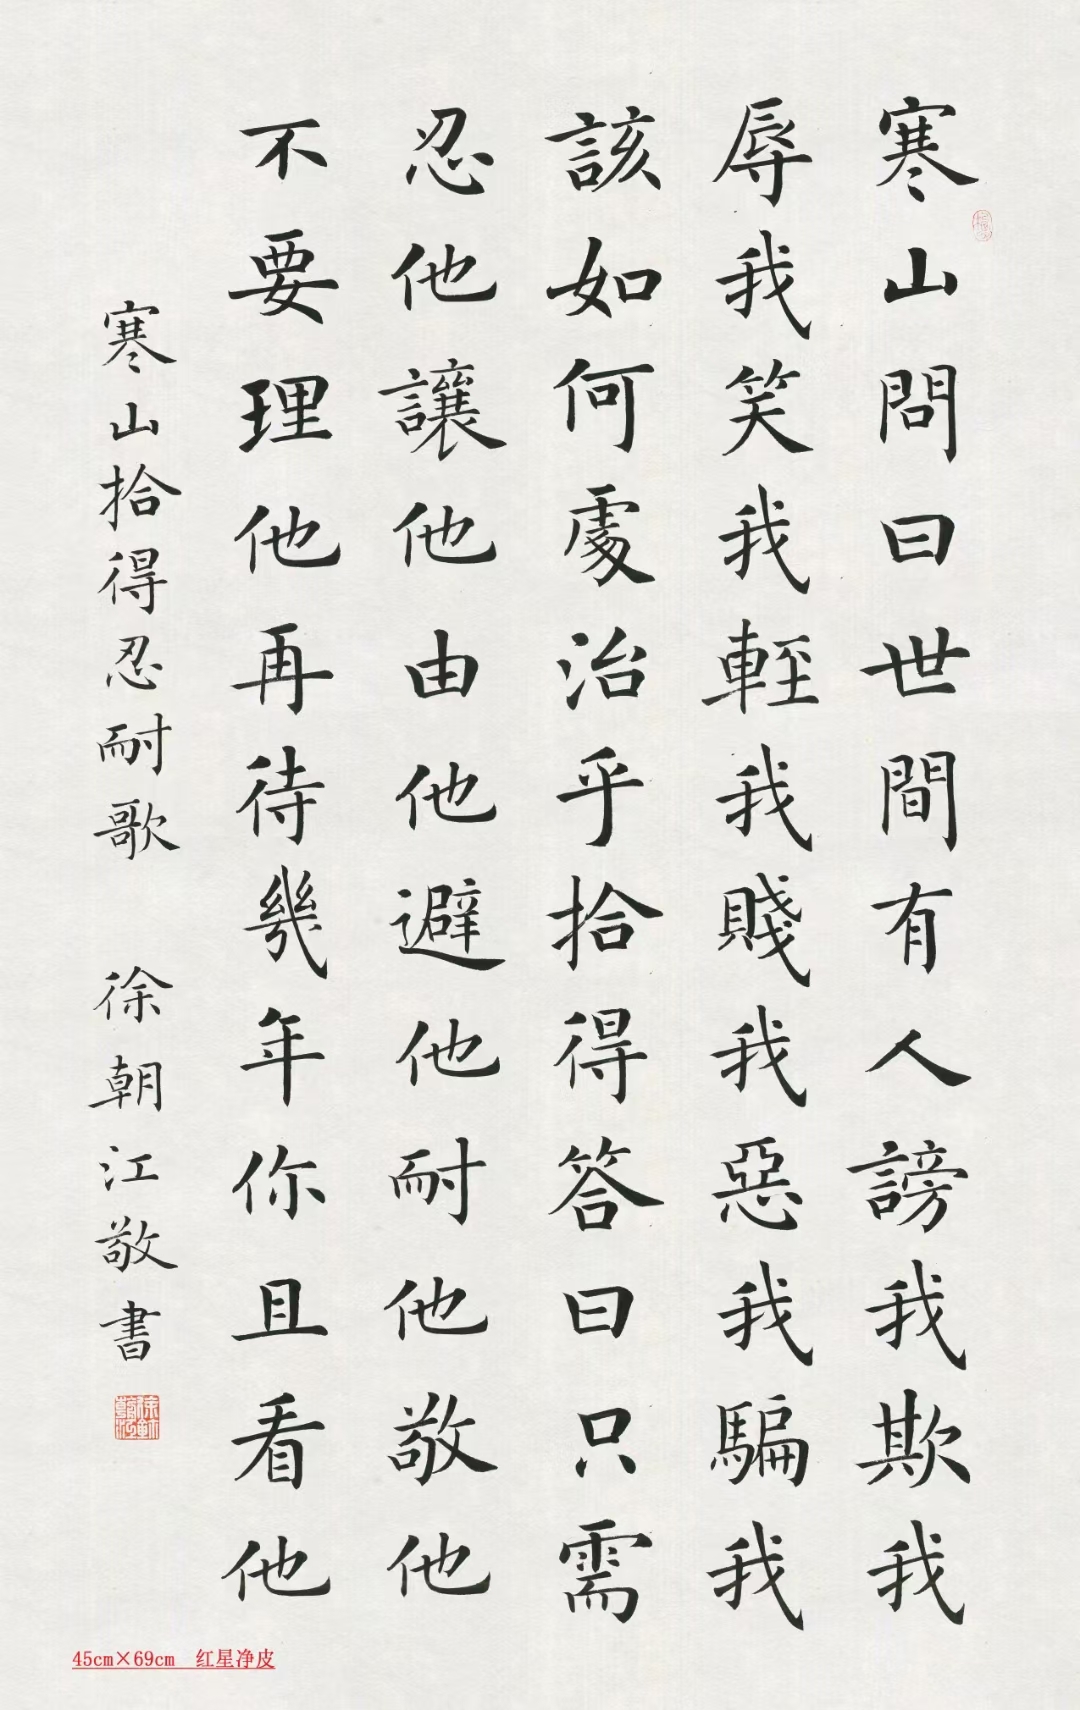 寒山問曰世間有人謗我欺我
辱我笑我輕我賤我惡我騙我
該如何處治乎拾得答曰只需
忍他讓他由他避他耐他敬他
不要理他再待幾年你且看他
寒山拾得忍耐歌 徐朝江敬書
45cm×69cm 红星净皮